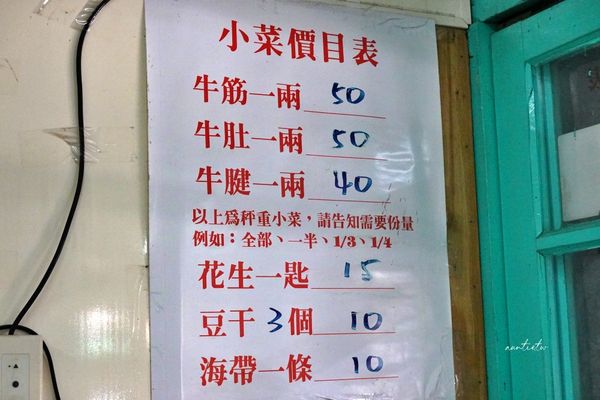 小菜價目表
牛筋一兩 50
牛肚一兩 50
牛腱一兩 40
以上為秤重小菜，請告知需要份量
例如：全部、一半、1/3、1/4
花生一匙 15
豆干3個 10
海帶一條 10
auntietw